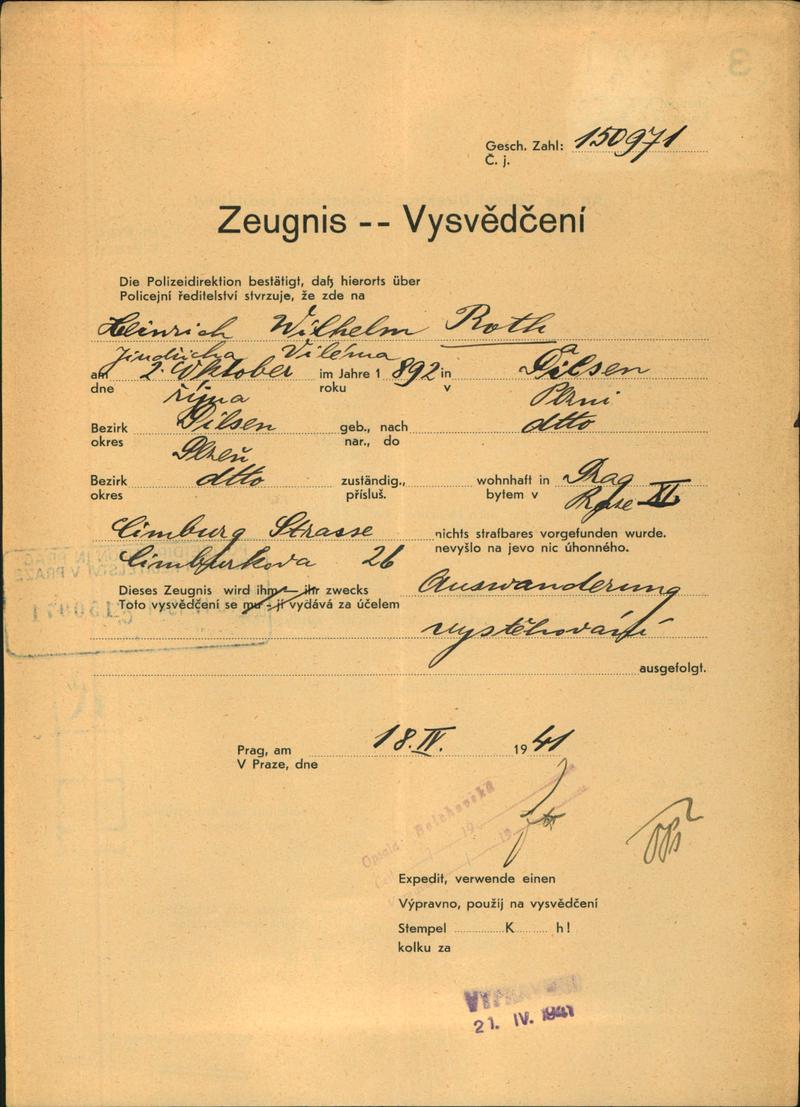 Gesch. Zahl: 150971
Č. j.
Zeugnis -- Vysvědčení
Die Polizeidirektion bestätigt, daß hierorts über
Policejní ředitelství stvrzuje, že zde na
Heinrich Wilhelm Roth
Jindřicha Viléma
am 2. Oktober im Jahre 1 892 in Pilsen
dne října roku v Plzni
Bezirk Pilsen geb., nach dtto
okres Plzeň nar., do
Bezirk dtto zuständig., wohnhaft in Prag
okres přísluš. bytem v Praze XI.
Cimburg Strasse nichts strafbares vorgefunden wurde.
Cimburkova 26 nevyšlo na jevo nic úhonného.
Dieses Zeugnis wird ihm - ihr zwecks Auswanderung
Toto vysvědčení se mu - jí vydává za účelem
vystěhování
ausgefolgt.
Prag, am 18. IV. 1941
V Praze, dne
Opsala: Bolchovská
19
19
Expedit, verwende einen
Výpravno, použij na vysvědčení
Stempel K h!
kolku za
VYPRAVENO
21. IV. 1941